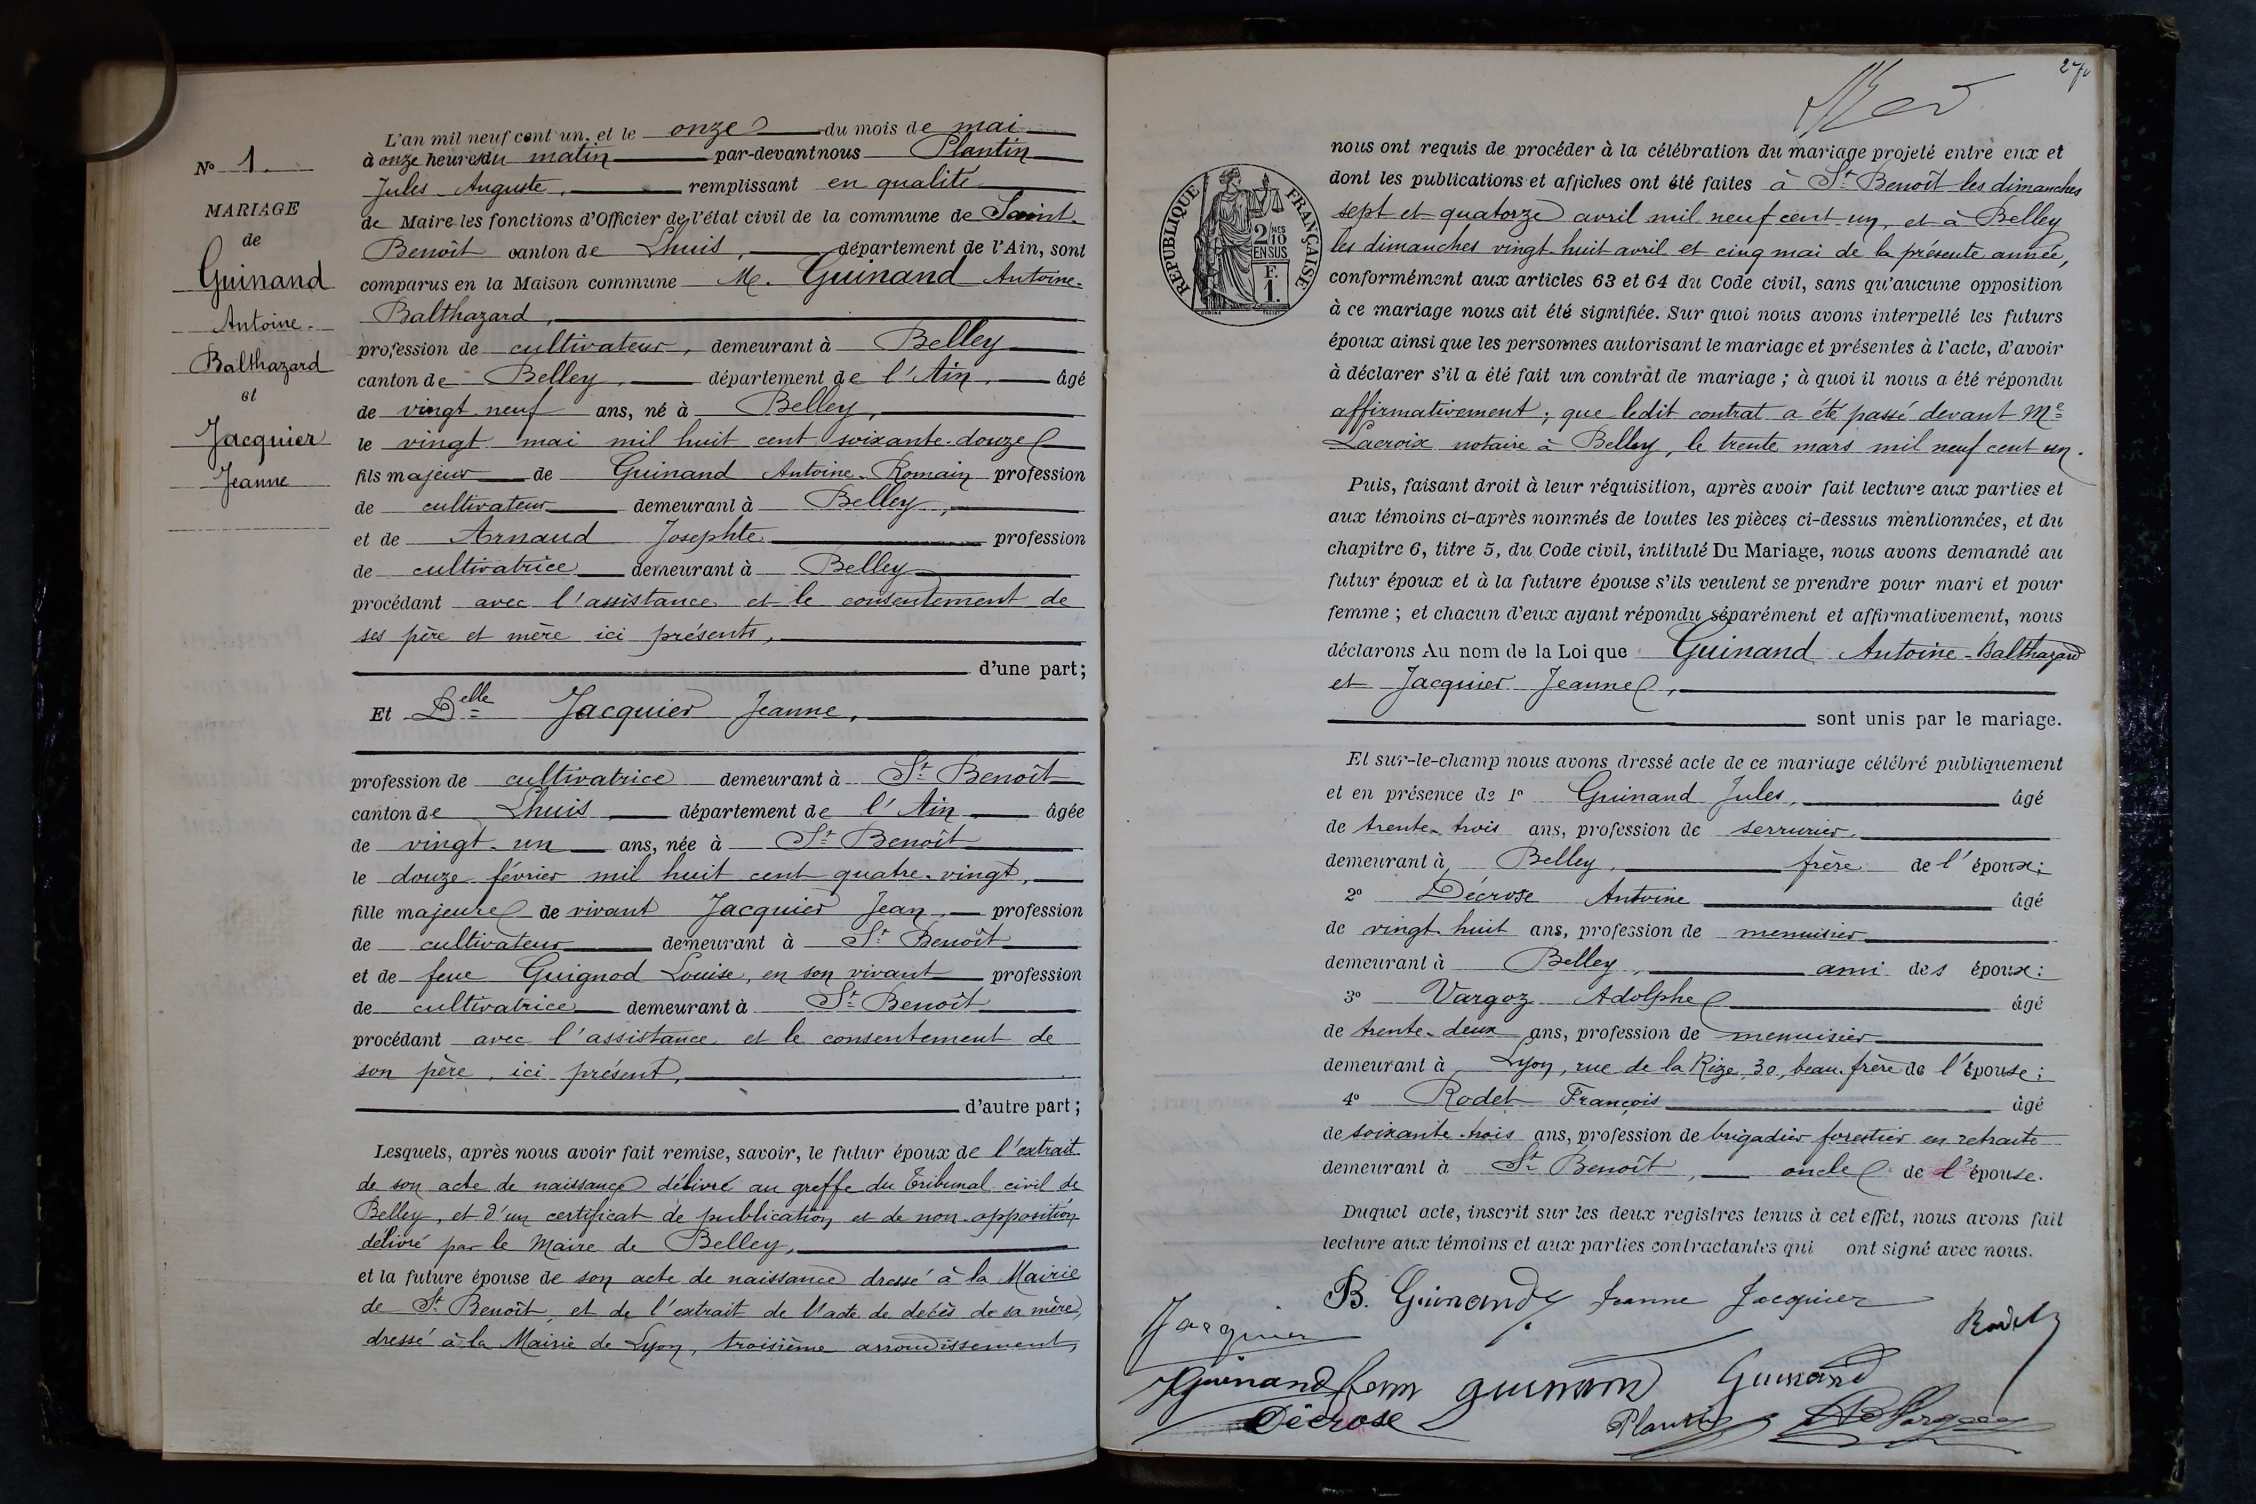 N° 1.
MARIAGE
de
Guinand
Antoine-
Balthazard
et
Jacquier
Jeanne
L'an mil neuf cent un, et le onze du mois de mai
à onze heures du matin par-devant nous Plantin
Jules Auguste, remplissant en qualité
de Maire les fonctions d'Officier de l'état civil de la commune de Saint-
Benoît canton de Lhuis, département de l'Ain, sont
comparus en la Maison commune M. Guinand Antoine-
Balthazard,
profession de cultivateur, demeurant à Belley
canton de Belley, département de l'Ain, âgé
de vingt-neuf ans, né à Belley,
le vingt mai mil huit cent soixante-douze
fils majeur de Guinand Antoine-Romain profession
de cultivateur demeurant à Belley,
et de Arnaud Josephte profession
de cultivatrice demeurant à Belley
procédant avec l'assistance et le consentement de
ses père et mère ici présents,
d'une part;
Et Delle Jacquier Jeanne,
profession de cultivatrice demeurant à St Benoît
canton de Lhuis département de l'Ain âgée
de vingt-un ans, née à St Benoît
le douze février mil huit cent quatre-vingt,
fille majeure de vivant Jacquier Jean, profession
de cultivateur demeurant à St Benoît
et de feue Guignod Louise, en son vivant profession
de cultivatrice demeurant à St Benoît
procédant avec l'assistance et le consentement de
son père, ici présent,
d'autre part;
Lesquels, après nous avoir fait remise, savoir, le futur époux de l'extrait
de son acte de naissance délivré au greffe du Tribunal civil de
Belley, et d'un certificat de publication et de non-opposition
délivré par le Maire de Belley,
et la future épouse de son acte de naissance dressé à la Mairie
de St Benoît, et de l'extrait de l'acte de décès de sa mère,
dressé à la Mairie de Lyon, troisième arrondissement,
RÉPUBLIQUE FRANÇAISE
2/10 MES
EN SUS
F.
1.
nous ont requis de procéder à la célébration du mariage projeté entre eux et
dont les publications et affiches ont été faites à St Benoît les dimanches
sept et quatorze avril mil neuf cent un, et à Belley
les dimanches vingt-huit avril et cinq mai de la présente année,
conformément aux articles 63 et 64 du Code civil, sans qu'aucune opposition
à ce mariage nous ait été signifiée. Sur quoi nous avons interpellé les futurs
époux ainsi que les personnes autorisant le mariage et présentes à l'acte, d'avoir
à déclarer s'il a été fait un contrat de mariage ; à quoi il nous a été répondu
affirmativement; que ledit contrat a été passé devant Me
Lacroix notaire à Belley, le trente mars mil neuf cent un.
Puis, faisant droit à leur réquisition, après avoir fait lecture aux parties et
aux témoins ci-après nommés de toutes les pièces ci-dessus mentionnées, et du
chapitre 6, titre 5, du Code civil, intitulé Du Mariage, nous avons demandé au
futur époux et à la future épouse s'ils veulent se prendre pour mari et pour
femme ; et chacun d'eux ayant répondu séparément et affirmativement, nous
déclarons Au nom de la Loi que Guinand Antoine-Balthazard
et Jacquier Jeanne,
sont unis par le mariage.
Et sur-le-champ nous avons dressé acte de ce mariage célébré publiquement
et en présence de 1° Guinand Jules, âgé
de trente-trois ans, profession de serrurier,
demeurant à Belley, frère de l'époux;
2° Décrose Antoine âgé
de vingt-huit ans, profession de menuisier
demeurant à Belley, ami des époux:
3° Vargoz Adolphe âgé
de trente-deux ans, profession de menuisier
demeurant à Lyon, rue de la Rize, 30, beau-frère de l'épouse;
4° Rodet François âgé
de soixante-trois ans, profession de brigadier forestier en retraite
demeurant à St Benoît, oncle de l'épouse.
Duquel acte, inscrit sur les deux registres tenus à cet effet, nous avons fait
lecture aux témoins et aux parties contractantes qui ont signé avec nous.
B. Guinand Jeanne Jacquier
Jacquier Rodet
Guinand guinand Guinand
Décrose Plantin Vargoz